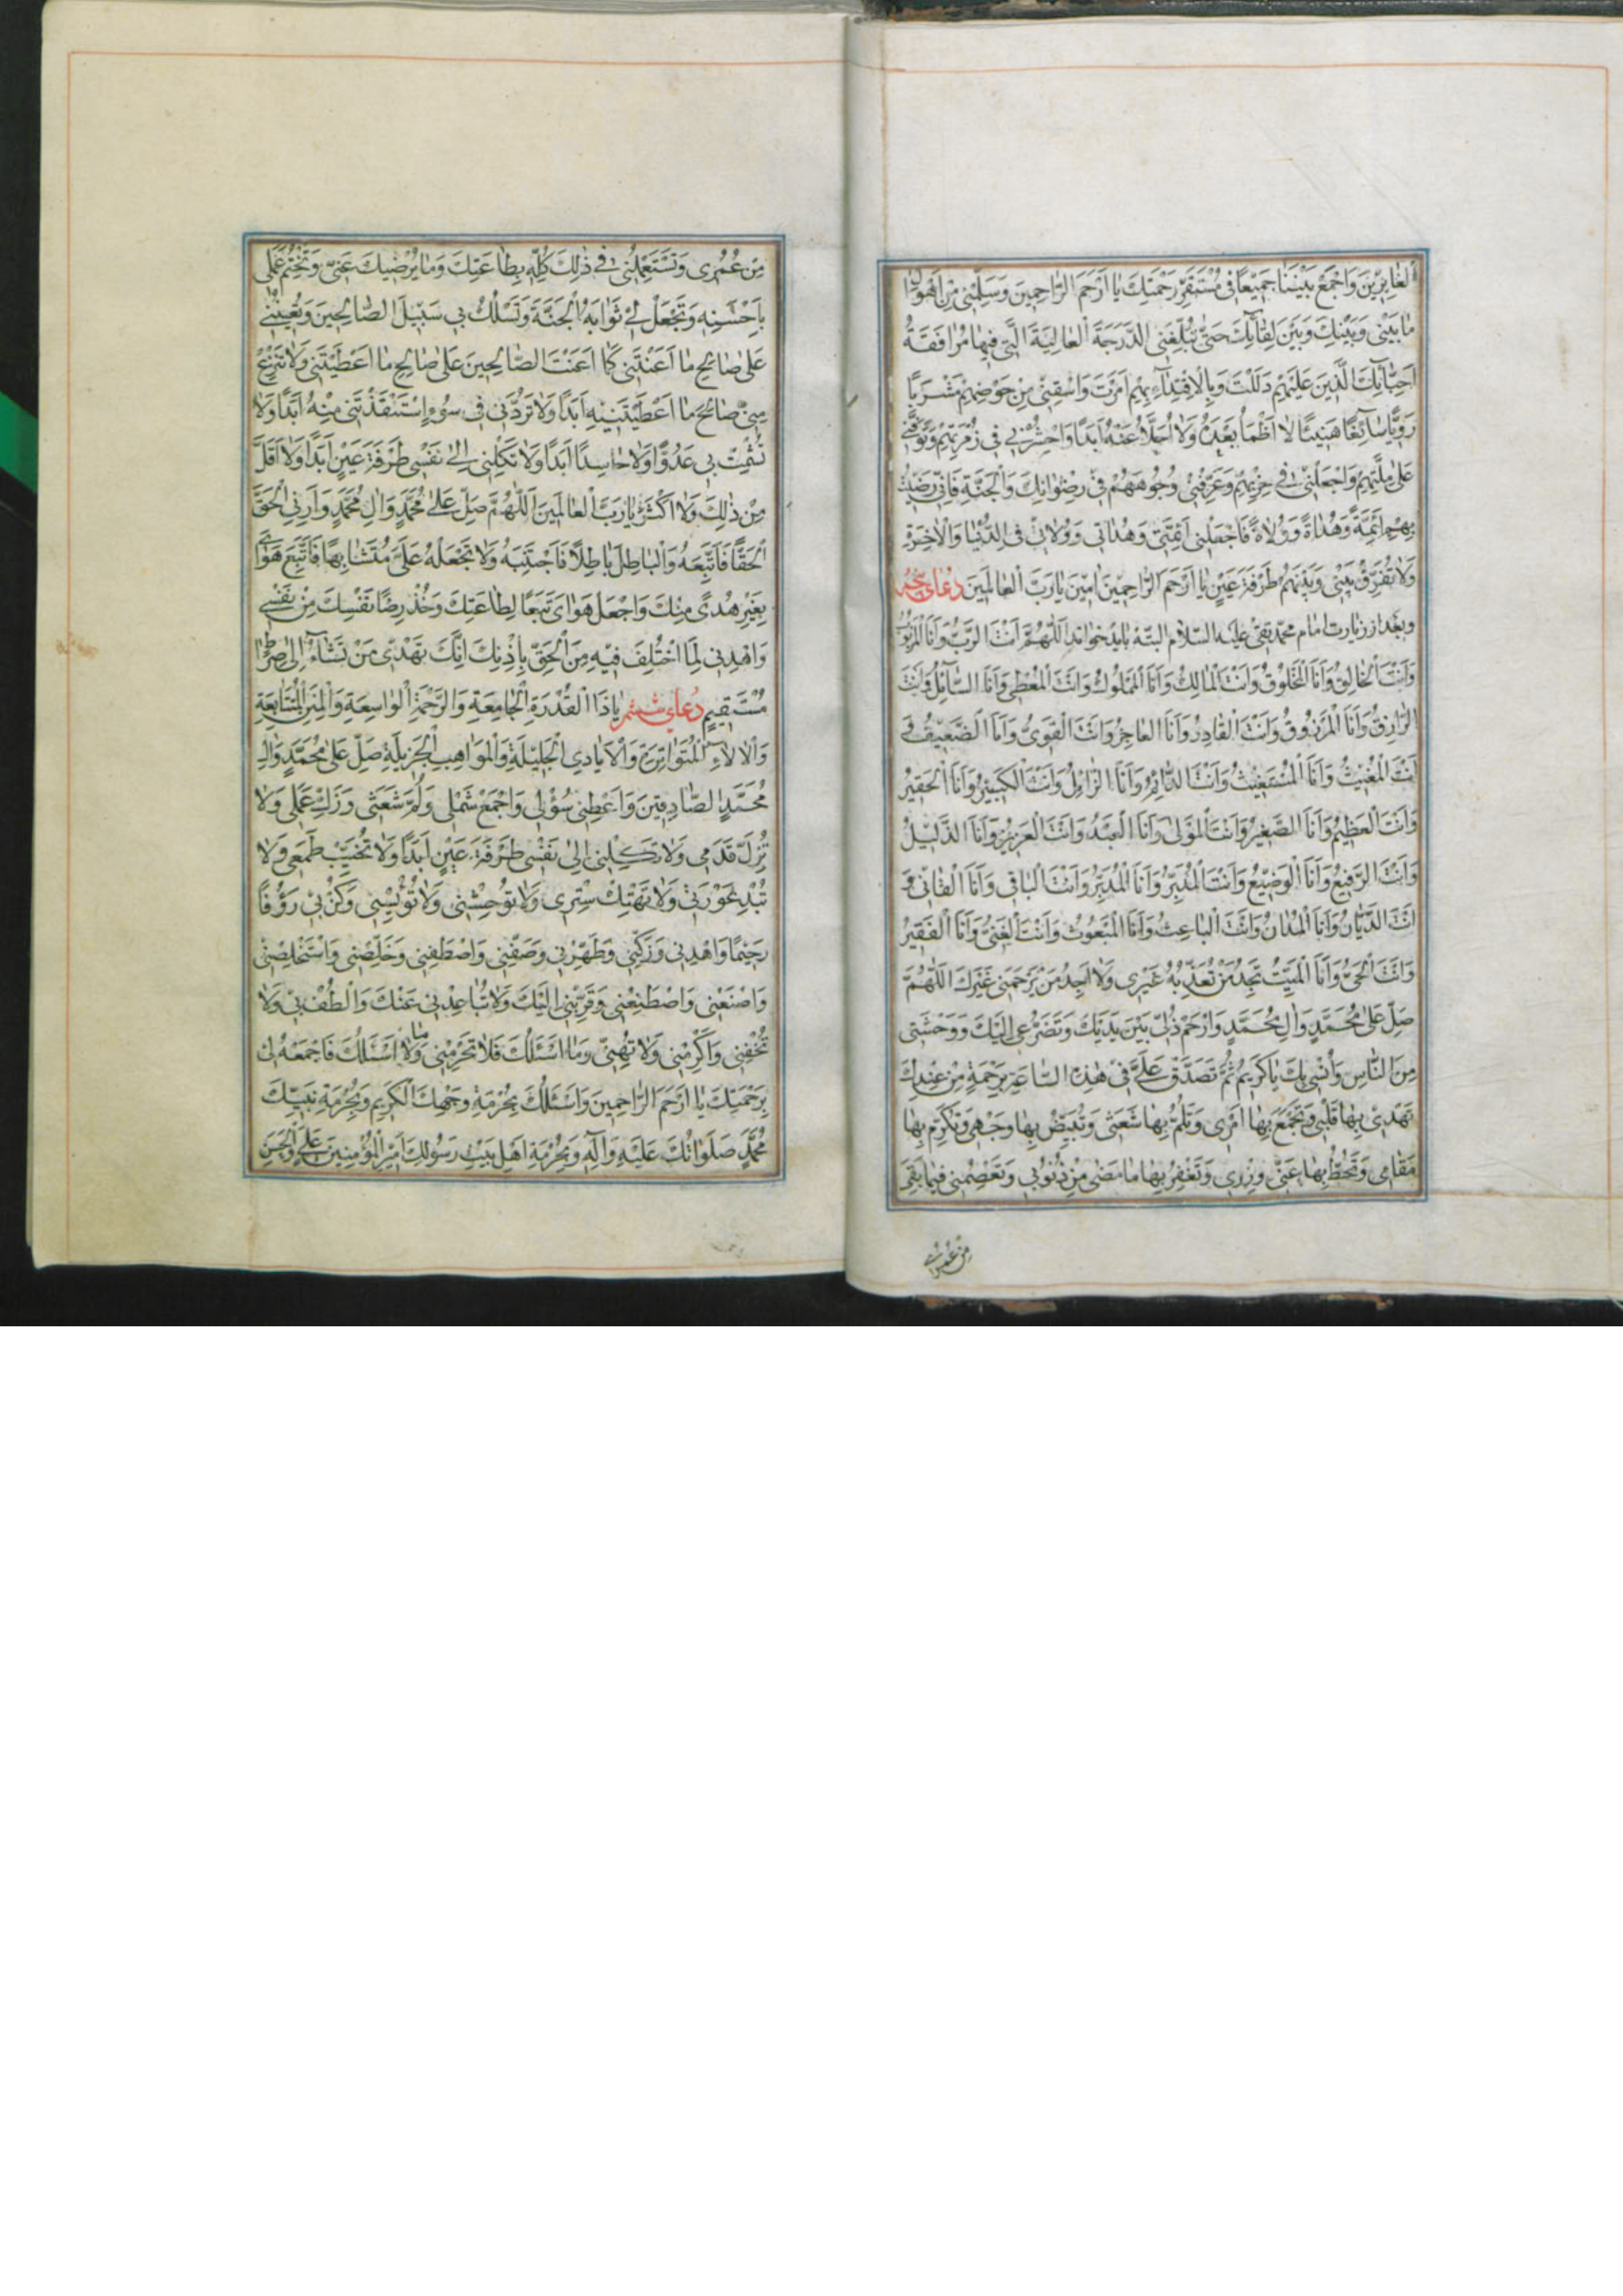 الغابرين وَاجْمَعْ بَيْنَنَا جَمِيْعًا فِي مُسْتَقَرِّ رَحْمَتِكَ يَا اَرْحَمَ الرَّاحِمِينَ وَسَلِّمْنِي مِنْ اَهْوَالِ
مَا بَيْنِي وَبَيْنَكَ وَبَيْنَ لِقَائِكَ حَتّٰى تُبَلِّغَنِي الدَّرَجَةَ الْعَالِيَةَ الَّتِي فِيهَا مُرَافَقَةُ
اَحِبَّائِكَ الَّذِينَ عَلَيْهِمْ دَلَلْتَ وَبِالْاِقْتِدَاءِ بِهِمْ اَمَرْتَ وَاسْقِنِي مِنْ حَوْضِهِمْ مَشْرَبًا
رَوِيًّا سَائِغًا هَنِيئًا لَا اَظْمَأُ بَعْدَهُ وَلَا اُحَلَّأُ عَنْهُ اَبَدًا وَاحْشُرْنِي فِي زُمْرَتِهِمْ وَتَوَفَّنِي
عَلٰى مِلَّتِهِمْ وَاجْعَلْنِي فِي حِزْبِهِمْ وَعَرِّفْنِي وُجُوهَهُمْ فِي رِضْوَانِكَ وَالْجَنَّةِ فَاِنِّي رَضِيتُ
بِهِمْ اَئِمَّةً وَهُدَاةً وَوُلَاةً فَاجْعَلْنِي اَئِمَّتِي وَهُدَاتِي وَوُلَاتِي فِي الدُّنْيَا وَالْاٰخِرَةِ
وَلَا تُفَرِّقْ بَيْنِي وَبَيْنَهُمْ طَرْفَةَ عَيْنٍ يَا اَرْحَمَ الرَّاحِمِينَ اٰمِينَ يَا رَبَّ الْعَالَمِينَ دُعَاى
وبعد از زيارت امام محمد تقى عليه السلام البته بايد خواند اَللّٰهُمَّ اَنْتَ الرَّبُّ وَاَنَا الْمَرْبُوبُ
وَاَنْتَ الْخَالِقُ وَاَنَا الْمَخْلُوقُ وَاَنْتَ الْمَالِكُ وَاَنَا الْمَمْلُوكُ وَاَنْتَ الْمُعْطِي وَاَنَا السَّائِلُ وَاَنْتَ
الرَّازِقُ وَاَنَا الْمَرْزُوقُ وَاَنْتَ الْقَادِرُ وَاَنَا الْعَاجِزُ وَاَنْتَ الْقَوِيُّ وَاَنَا الضَّعِيفُ وَ
اَنْتَ الْمُغِيثُ وَاَنَا الْمُسْتَغِيثُ وَاَنْتَ الدَّائِمُ وَاَنَا الزَّائِلُ وَاَنْتَ الْكَبِيرُ وَاَنَا الْحَقِيرُ
وَاَنْتَ الْعَظِيمُ وَاَنَا الصَّغِيرُ وَاَنْتَ الْمَوْلٰى وَاَنَا الْعَبْدُ وَاَنْتَ الْعَزِيزُ وَاَنَا الذَّلِيلُ
وَاَنْتَ الرَّفِيعُ وَاَنَا الْوَضِيعُ وَاَنْتَ الْمُدَبِّرُ وَاَنَا الْمُدَبَّرُ وَاَنْتَ الْبَاقِي وَاَنَا الْفَانِي وَ
اَنْتَ الدَّيَّانُ وَاَنَا الْمُدَانُ وَاَنْتَ الْبَاعِثُ وَاَنَا الْمَبْعُوثُ وَاَنْتَ الْغَنِيُّ وَاَنَا الْفَقِيرُ
وَاَنْتَ الْحَيُّ وَاَنَا الْمَيِّتُ تَجِدُ مَنْ تُعَذِّبُهُ غَيْرِي وَلَا اَجِدُ مَنْ يَرْحَمُنِي غَيْرَكَ اَللّٰهُمَّ
صَلِّ عَلٰى مُحَمَّدٍ وَاٰلِ مُحَمَّدٍ وَارْحَمْ ذُلِّي بَيْنَ يَدَيْكَ وَتَضَرُّعِي اِلَيْكَ وَوَحْشَتِي
مِنَ النَّاسِ وَاُنْسِي بِكَ يَا كَرِيمُ ثُمَّ تَصَدَّقْ عَلَيَّ فِي هٰذِهِ السَّاعَةِ بِرَحْمَةٍ مِنْ عِنْدِكَ
تَهْدِي بِهَا قَلْبِي وَتَجْمَعُ بِهَا اَمْرِي وَتَلُمُّ بِهَا شَعَثِي وَتُبَيِّضُ بِهَا وَجْهِي وَتُكْرِمُ بِهَا
مَقَامِي وَتَحُطُّ بِهَا عَنِّي وِزْرِي وَتَغْفِرُ بِهَا مَا مَضٰى مِنْ ذُنُوبِي وَتَعْصِمُنِي فِيمَا بَقِيَ
مِنْ عُمُرِى
مِنْ عُمُرِى وَتَسْتَعْمِلُنِي فِي ذٰلِكَ كُلِّهِ بِطَاعَتِكَ وَمَا يُرْضِيكَ عَنِّي وَتَخْتِمُ عَمَلِي
بِاَحْسَنِهِ وَتَجْعَلُ لِي ثَوَابَهُ الْجَنَّةَ وَتَسْلُكُ بِي سَبِيلَ الصَّالِحِينَ وَتُعِينُنِي
عَلٰى صَالِحِ مَا اَعْطَيْتَنِي كَمَا اَعَنْتَ الصَّالِحِينَ عَلٰى صَالِحِ مَا اَعْطَيْتَنِي وَلَا تَنْزِعْ
مِنِّي صَالِحَ مَا اَعْطَيْتَنِيهِ اَبَدًا وَلَا تَرُدَّنِي فِي سُوْءٍ اِسْتَنْقَذْتَنِي مِنْهُ اَبَدًا وَلَا
تُشْمِتْ بِي عَدُوًّا وَلَا حَاسِدًا اَبَدًا وَلَا تَكِلْنِي اِلٰى نَفْسِي طَرْفَةَ عَيْنٍ اَبَدًا وَلَا اَقَلَّ
مِنْ ذٰلِكَ وَلَا اَكْثَرَ يَا رَبَّ الْعَالَمِينَ اَللّٰهُمَّ صَلِّ عَلٰى مُحَمَّدٍ وَاٰلِ مُحَمَّدٍ وَاَرِنِي الْحَقَّ
الْحَقَّا فَاَتَّبِعَهُ وَالْبَاطِلَ بَاطِلًا فَاَجْتَنِبَهُ وَلَا تَجْعَلْهُ عَلَيَّ مُتَشَابِهًا فَاَتَّبِعَ هَوَايَ
بِغَيْرِ هُدًى مِنْكَ وَاجْعَلْ هَوَايَ تَبَعًا لِطَاعَتِكَ وَخُذْ رِضَا نَفْسِكَ مِنْ نَفْسِي
وَاهْدِنِي لِمَا اخْتُلِفَ فِيهِ مِنَ الْحَقِّ بِاِذْنِكَ اِنَّكَ تَهْدِي مَنْ تَشَاءُ اِلٰى صِرَاطٍ
مُسْتَقِيمٍ دُعَاى ششم يَا ذَا الْقُدْرَةِ الْجَامِعَةِ وَالرَّحْمَةِ الْوَاسِعَةِ وَالْمِنَنِ الْمُتَتَابِعَةِ
وَالْاٰلَاءِ الْمُتَوَاتِرَةِ وَالْاَيَادِي الْجَلِيلَةِ وَالْمَوَاهِبِ الْجَزِيلَةِ صَلِّ عَلٰى مُحَمَّدٍ وَاٰلِ
مُحَمَّدٍ الصَّادِقِينَ وَاَعْطِنِي سُؤْلِي وَاجْمَعْ شَمْلِي وَلُمَّ شَعَثِي وَزَكِّ عَمَلِي وَلَا
تُزِلَّ قَدَمِي وَلَا تَكِلْنِي اِلٰى نَفْسِي طَرْفَةَ عَيْنٍ اَبَدًا وَلَا تُخَيِّبْ طَمَعِي وَلَا
تُبْدِ عَوْرَتِي وَلَا تَهْتِكْ سِتْرِي وَلَا تُوحِشْنِي وَلَا تُؤْيِسْنِي وَكُنْ بِي رَؤُفًا
رَحِيمًا وَاهْدِنِي وَزَكِّنِي وَطَهِّرْنِي وَصَفِّنِي وَاصْطَفِنِي وَخَلِّصْنِي وَاسْتَخْلِصْنِي
وَاصْنَعْنِي وَاصْطَنِعْنِي وَقَرِّبْنِي اِلَيْكَ وَلَا تُبَاعِدْنِي عَنْكَ وَالْطُفْ بِي وَلَا
تُجْفِنِي وَاَكْرِمْنِي وَلَا تُهِنِّي وَمَا اَسْئَلُكَ فَلَا تَحْرِمْنِي وَمَا لَا اَسْئَلُكَ فَاجْمَعْهُ لِي
بِرَحْمَتِكَ يَا اَرْحَمَ الرَّاحِمِينَ وَاَسْئَلُكَ بِحُرْمَةِ وَجْهِكَ الْكَرِيمِ وَبِحُرْمَةِ نَبِيِّكَ
مُحَمَّدٍ صَلَوَاتُكَ عَلَيْهِ وَاٰلِهِ وَبِحُرْمَةِ اَهْلِ بَيْتِ رَسُولِكَ اَمِيرِ الْمُؤْمِنِينَ عَلِيٍّ وَالْحَسَنِ